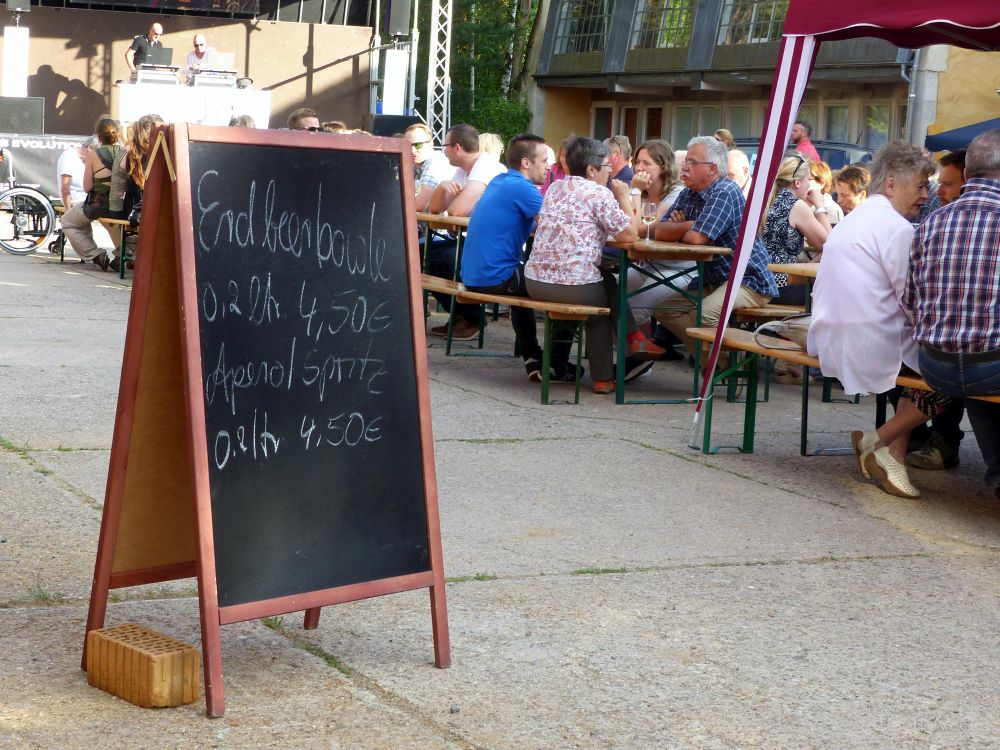 EVOLUTION
Erdbeerbowle
0,2 ltr. 4,50€
Aperol Spritz
0.2 ltr 4.50€